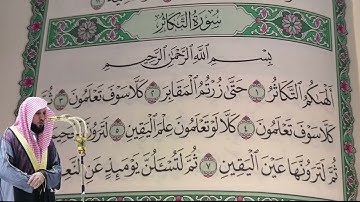 سُورَةُ التَّكَاثُرِ
بِسْمِ اللَّهِ الرَّحْمَٰنِ الرَّحِيمِ
أَلْهَىٰكُمُ ٱلتَّكَاثُرُ ١ حَتَّىٰ زُرْتُمُ ٱلْمَقَابِرَ ٢ كَلَّا سَوْفَ تَعْلَمُونَ ٣
كَلَّا سَوْفَ تَعْلَمُونَ ٤ كَلَّا لَوْ تَعْلَمُونَ عِلْمَ ٱلْيَقِينِ ٥ لَتَرَوُنَّ
ثُمَّ لَتَرَوُنَّهَا عَيْنَ ٱلْيَقِينِ ٧ ثُمَّ لَتُسْـَٔلُنَّ يَوْمَئِذٍ عَنِ